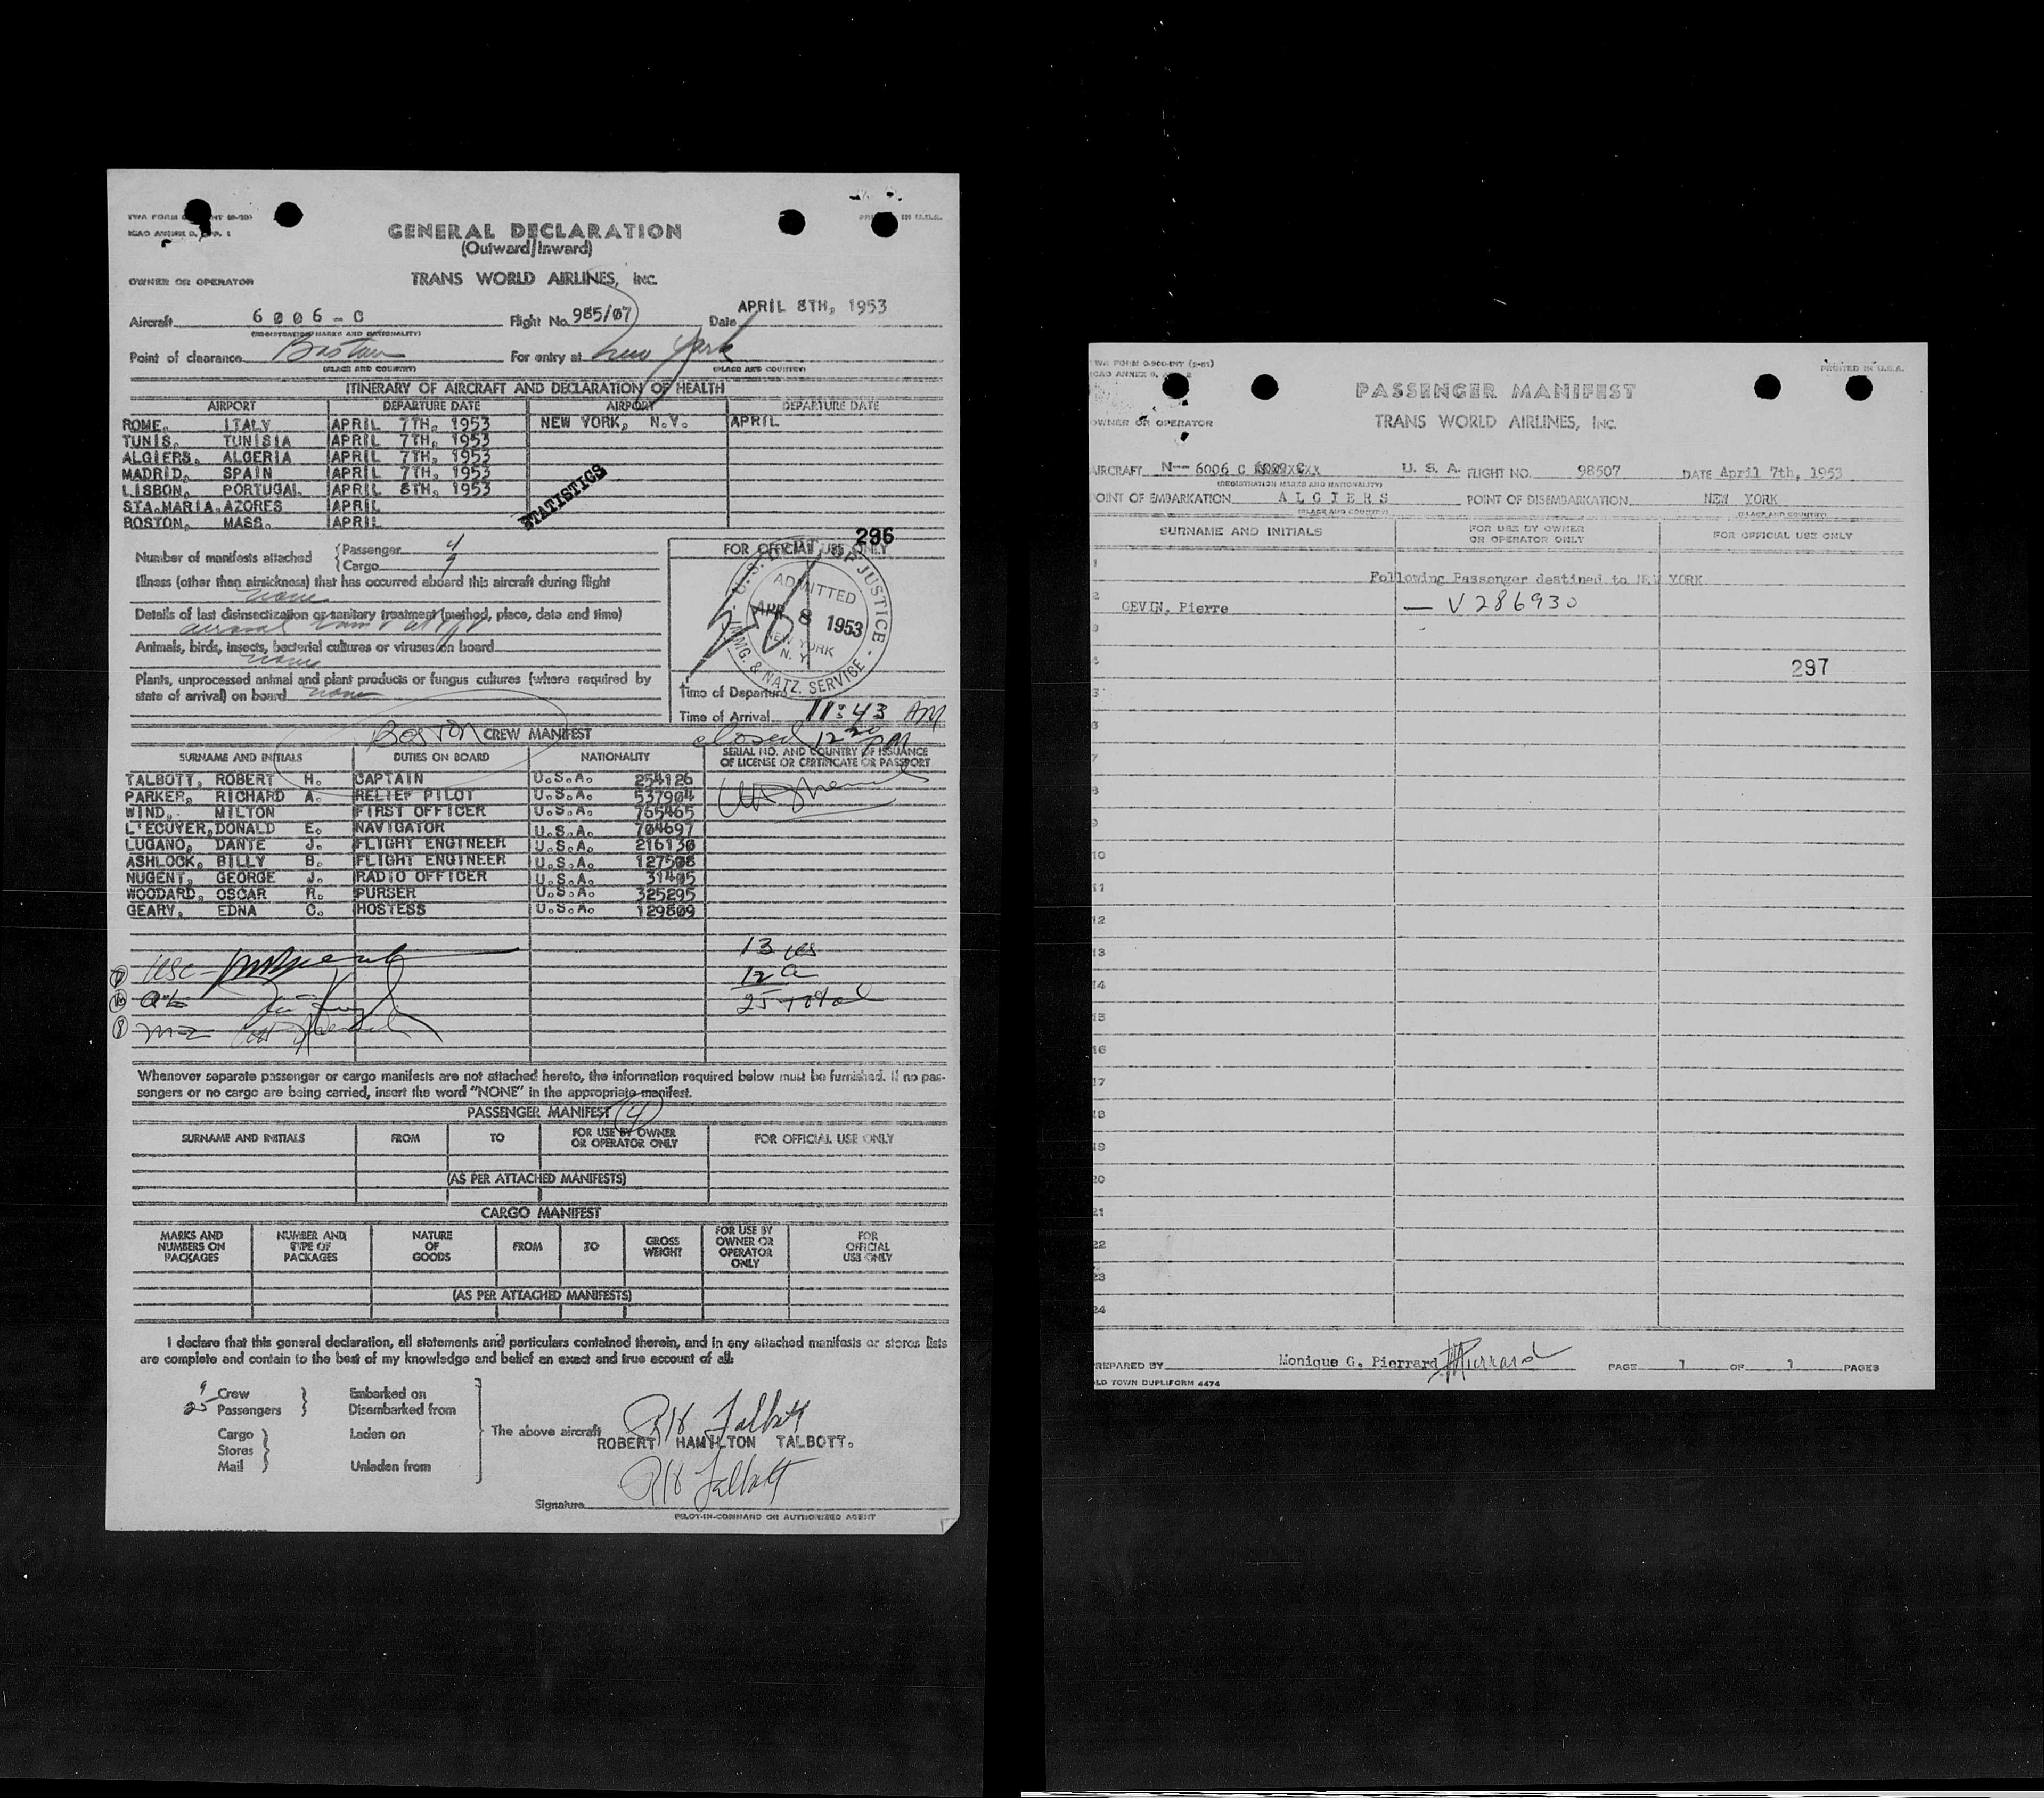 TWA FORM
ICAO ANNEX 9, APP. 1
PRINTED IN U.S.A.
GENERAL DECLARATION
(Outward/Inward)
OWNER OR OPERATOR TRANS WORLD AIRLINES, INC.
Aircraft 6006-C Flight No. 985/07 Date APRIL 8TH, 1953
(REGISTRATION MARKS AND NATIONALITY)
Point of clearance Boston For entry at New York
(PLACE AND COUNTRY) (PLACE AND COUNTRY)
ITINERARY OF AIRCRAFT AND DECLARATION OF HEALTH
AIRPORT DEPARTURE DATE AIRPORT DEPARTURE DATE
ROME, ITALY APRIL 7TH, 1953 NEW YORK, N.Y. APRIL
TUNIS, TUNISIA APRIL 7TH, 1953
ALGIERS, ALGERIA APRIL 7TH, 1953
MADRID, SPAIN APRIL 7TH, 1953
LISBON, PORTUGAL. APRIL 8TH, 1953
STA.MARIA.AZORES APRIL
BOSTON, MASS. APRIL
STATISTICS
296
Number of manifests attached Passenger 4
Cargo 7
FOR OFFICIAL USE ONLY
Illness (other than airsickness) that has occurred aboard this aircraft during flight
none
Details of last disinsectization or sanitary treatment (method, place, date and time)
aerosol
Animals, birds, insects, bacterial cultures or viruses on board
none
Plants, unprocessed animal and plant products or fungus cultures (where required by
state of arrival) on board none
U.S. DEPT. OF JUSTICE
ADMITTED
APR 8 1953
NEW YORK
N. Y.
IMMG. & NATZ. SERVICE
Time of Departure
Time of Arrival 11:43 AM
closed 12 20 PM
Boston CREW MANIFEST
SURNAME AND INITIALS DUTIES ON BOARD NATIONALITY SERIAL NO. AND COUNTRY OF ISSUANCE
OF LICENSE OR CERTIFICATE OR PASSPORT
TALBOTT, ROBERT H. CAPTAIN U.S.A. 254126
PARKER, RICHARD A. RELIEF PILOT U.S.A. 537904
WIND, MILTON FIRST OFFICER U.S.A. 765465
L'ECUYER, DONALD E. NAVIGATOR U.S.A. 704697
LUGANO, DANTE J. FLIGHT ENGINEER U.S.A. 216130
ASHLOCK, BILLY B. FLIGHT ENGINEER U.S.A. 127508
NUGENT, GEORGE J. RADIO OFFICER U.S.A. 31405
WOODARD, OSCAR R. PURSER U.S.A. 325295
GEARY, EDNA C. HOSTESS U.S.A. 129809
13 us
12 a
25 total
USC
Whenever separate passenger or cargo manifests are not attached hereto, the information required below must be furnished. If no pas-
sengers or no cargo are being carried, insert the word "NONE" in the appropriate manifest.
PASSENGER MANIFEST (4)
SURNAME AND INITIALS FROM TO FOR USE BY OWNER
OR OPERATOR ONLY FOR OFFICIAL USE ONLY
(AS PER ATTACHED MANIFESTS)
CARGO MANIFEST
MARKS AND
NUMBERS ON
PACKAGES NUMBER AND
TYPE OF
PACKAGES NATURE
OF
GOODS FROM TO GROSS
WEIGHT FOR USE BY
OWNER OR
OPERATOR
ONLY FOR
OFFICIAL
USE ONLY
(AS PER ATTACHED MANIFESTS)
I declare that this general declaration, all statements and particulars contained therein, and in any attached manifests or stores lists
are complete and contain to the best of my knowledge and belief an exact and true account of all:
9 Crew Embarked on
25 Passengers Disembarked from
Cargo Laden on
Stores
Mail Unladen from
The above aircraft
RH Talbott
ROBERT HAMILTON TALBOTT.
RH Talbott
Signature
PILOT-IN-COMMAND OR AUTHORIZED AGENT
TWA FORM O-900-INT (2-51)
ICAO ANNEX 9, APP. 2
PRINTED IN U.S.A.
PASSENGER MANIFEST
OWNER OR OPERATOR TRANS WORLD AIRLINES, INC.
AIRCRAFT N-- 6006 C U. S. A. FLIGHT NO. 98507 DATE April 7th, 1953
(REGISTRATION MARKS AND NATIONALITY)
POINT OF EMBARKATION A L G I E R S POINT OF DISEMBARKATION NEW YORK
(PLACE AND COUNTRY) (PLACE AND COUNTRY)
SURNAME AND INITIALS FOR USE BY OWNER
OR OPERATOR ONLY FOR OFFICIAL USE ONLY
1
Following Passenger destined to NEW YORK
2 GEVIN, Pierre — V 286930
3
4
297
5
6
7
8
9
10
11
12
13
14
15
16
17
18
19
20
21
22
23
24
PREPARED BY Monique G. Pierrard MPierrard PAGE 1 OF 1 PAGES
OLD TOWN DUPLIFORM 4474